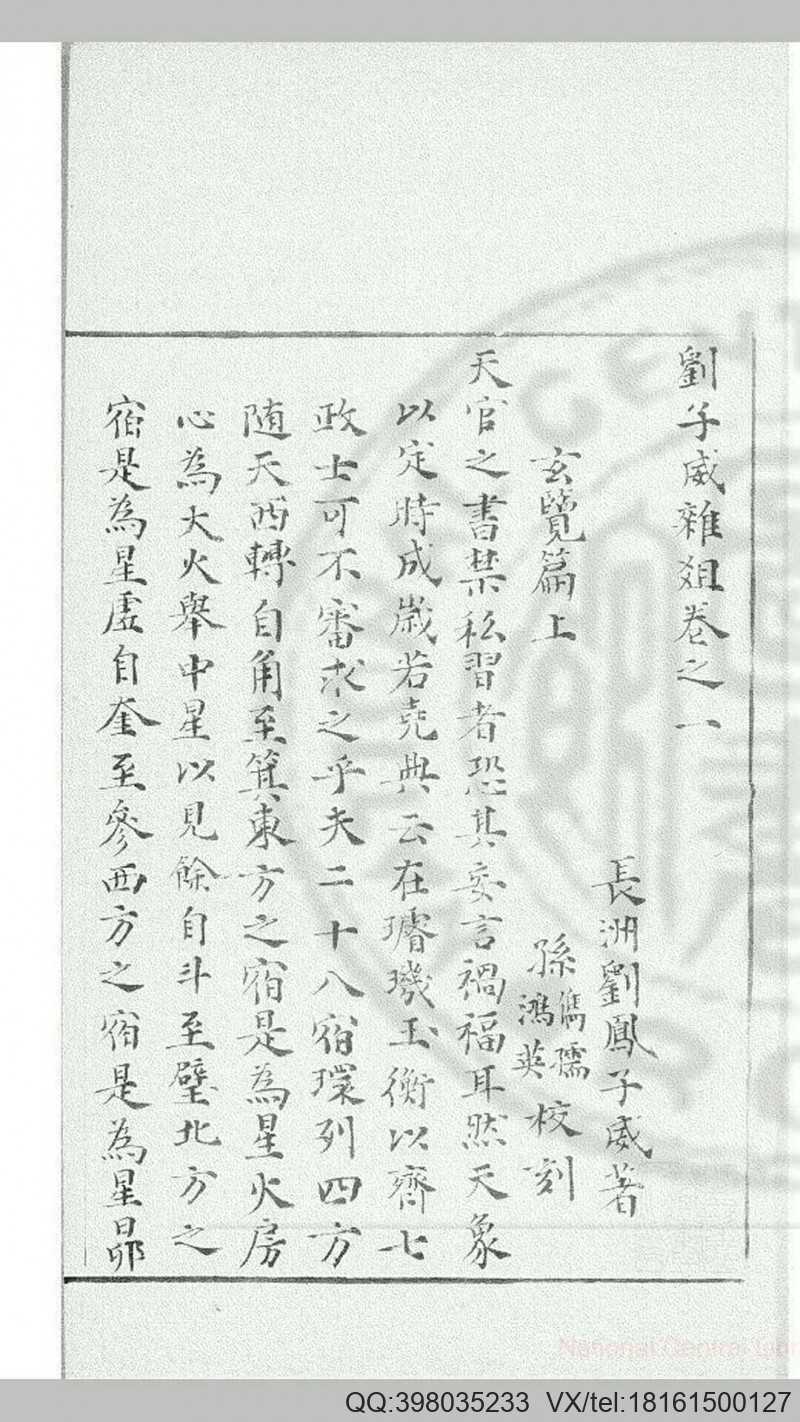 劉子威雜爼卷之一
長洲劉鳳子威著
玄覽篇上
孫儁孺鴻英校刻
天官之書禁私習者恐其妄言禍福耳然天象
以定時成嵗若堯典云在璿璣玉衡以齊七
政士可不審求之乎夫二十八宿環列四方
随天西轉自角至箕東方之宿是為星火房
心為大火舉中星以見餘自斗至壁北方之
宿是為星虛自奎至參西方之宿是為星昴
National Central Libra
QQ:398035233 VX/tel:18161500127